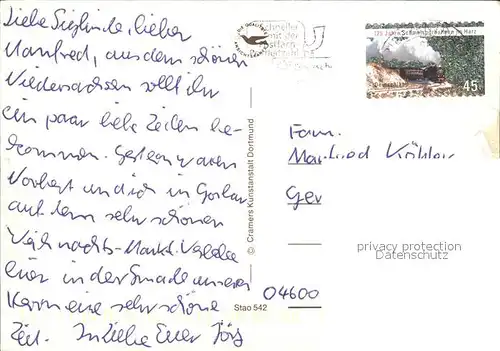 Liebe Sieglinde, lieber
Manfred, aus dem schönen
Niedersachsen sollt ihr
ein paar liebe Zeilen be-
kommen. Gestern waren
Norbert und ich in Goslar
auf dem sehr schönen
Weihnachts-Markt.
hier in der
Karin eine sehr schöne
Zeit. In Liebe Euer Jörg
© Cramers Kunstanstalt Dortmund
Stao 542
schneller
mit der
125 Jahre Schmalspurbahnen im Harz
45
Fam.
Manfred Köhler
Ger
privacy protection
Datenschutz
04600